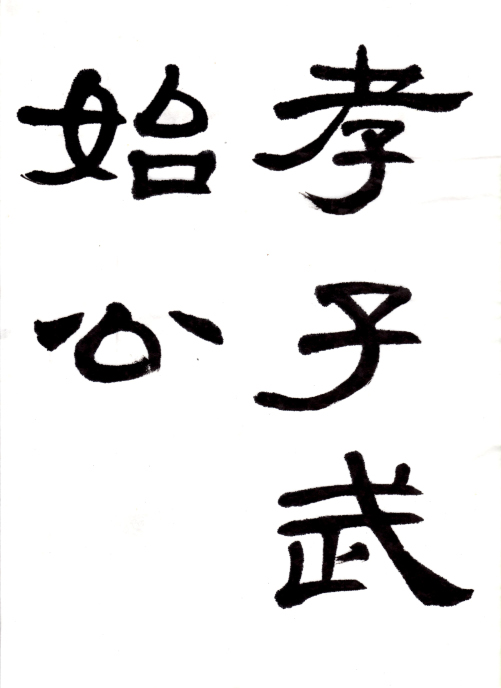 孝子武
始公